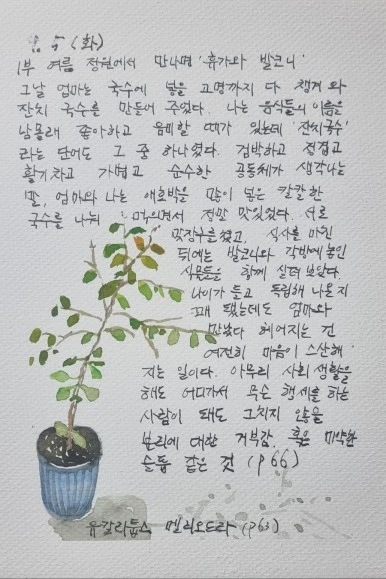 (화)
1부 여름 정원에서 만나면 '휴가와 발코니'
그날 엄마는 국수에 넣을 고명까지 다 챙겨 와
잔치 국수를 만들어 주었다. 나는 음식들의 이름을
남몰래 좋아하고 음미할 때가 있는데 '잔치국수'
라는 단어도 그 중 하나였다. 겁박하고 정겹고
활기차고 가볍고 순수한 공동체가 생각나는
말, 엄마와 나는 애호박을 많이 넣은 칼칼한
국수를 나눠 먹으면서 정말 맛있었다. 서로
맞장구를 쳤고, 식사를 마친
뒤에는 발코니와 각방에 놓인
식물들을 함께 살펴 보았다.
나이가 들고 독립해 나온 지
꽤 됐는데도 엄마와
만났다 헤어지는 건
여전히 마음이 스산해
지는 일이다. 아무리 사회 생활을
해도 어디가서 무슨 행세를 하는
사람이 돼도 그치지 않을
분리에 대한 거부감, 혹은 미약한
슬픔 같은 것 (p66)
유칼리툽스 멜리오도라 (p63)